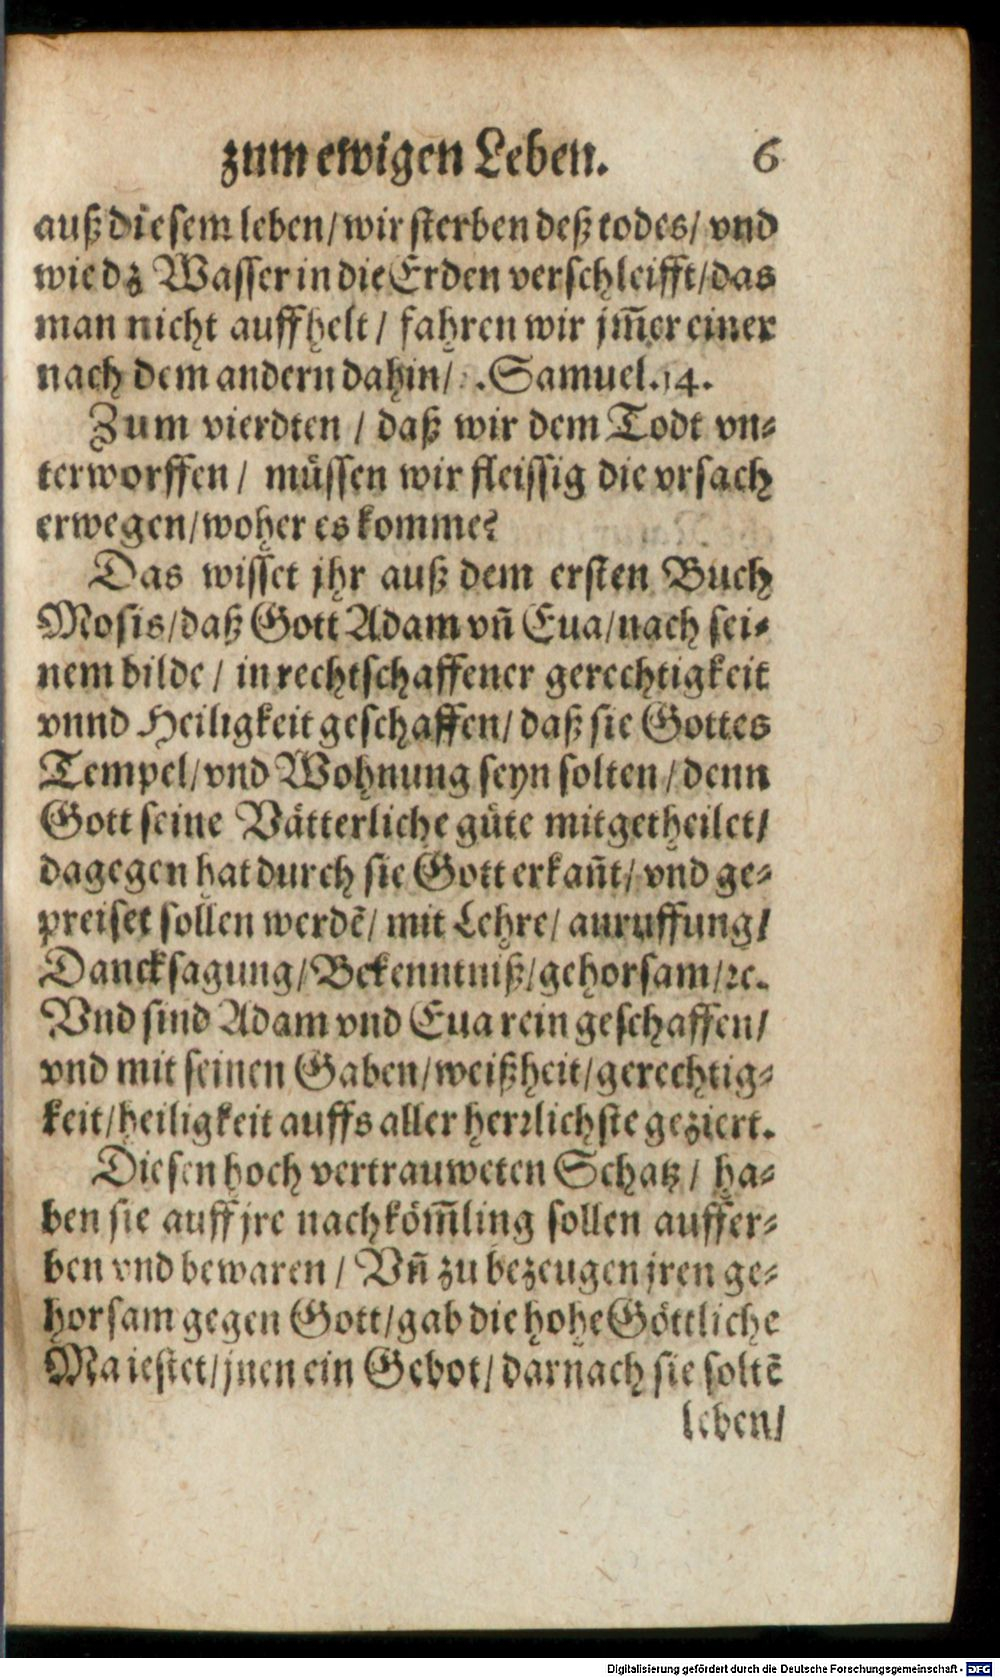 zum ewigen Leben. 6
auß diesem leben/ wir sterben deß todes/ vnd
wie dz Wasser in die Erden verschleifft/ das
man nicht auffhelt/ fahren wir jm̃er einer
nach dem andern dahin/ .Samuel.14.
Zum vierdten / daß wir dem Todt vn⸗
terworffen/ müssen wir fleissig die vrsach
erwegen/ woher es komme?
Das wisset jhr auß dem ersten Buch
Mosis/ daß Gott Adam vñ Eua/ nach sei⸗
nem bilde/ in rechtschaffener gerechtigkeit
vnnd Heiligkeit geschaffen/ daß sie Gottes
Tempel/ vnd Wohnung seyn solten/ denn
Gott seine Vätterliche güte mitgetheilet/
dagegen hat durch sie Gott erkañt/ vnd ge⸗
preiset sollen werdẽ/ mit Lehre/ anruffung/
Dancksagung/ Bekenntniß/ gehorsam/ ꝛc.
Vnd sind Adam vnd Eua rein geschaffen/
vnd mit seinen Gaben/ weißheit/ gerechtig⸗
keit/ heiligkeit auffs aller herꝛlichste geziert.
Diesen hoch vertrauweten Schatz/ ha⸗
ben sie auff jre nachköm̃ling sollen auffer⸗
ben vnd bewaren/ Vñ zu bezeugen jren ge⸗
horsam gegen Gott/ gab die hohe Göttliche
Maiestet/ jnen ein Gebot/ darnach sie soltẽ
leben/
Digitalisierung gefördert durch die Deutsche Forschungsgemeinschaft - DFG